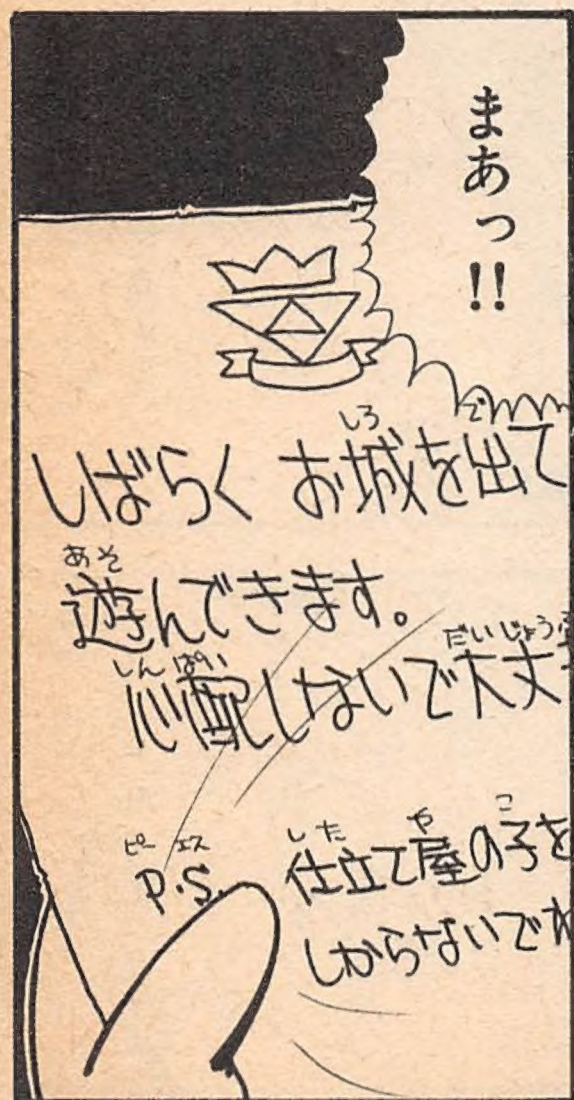 まあっ!!
しばらく お城を出て
遊んできます。
心配しないで大丈
P.S. 仕立て屋の子を
しからないで